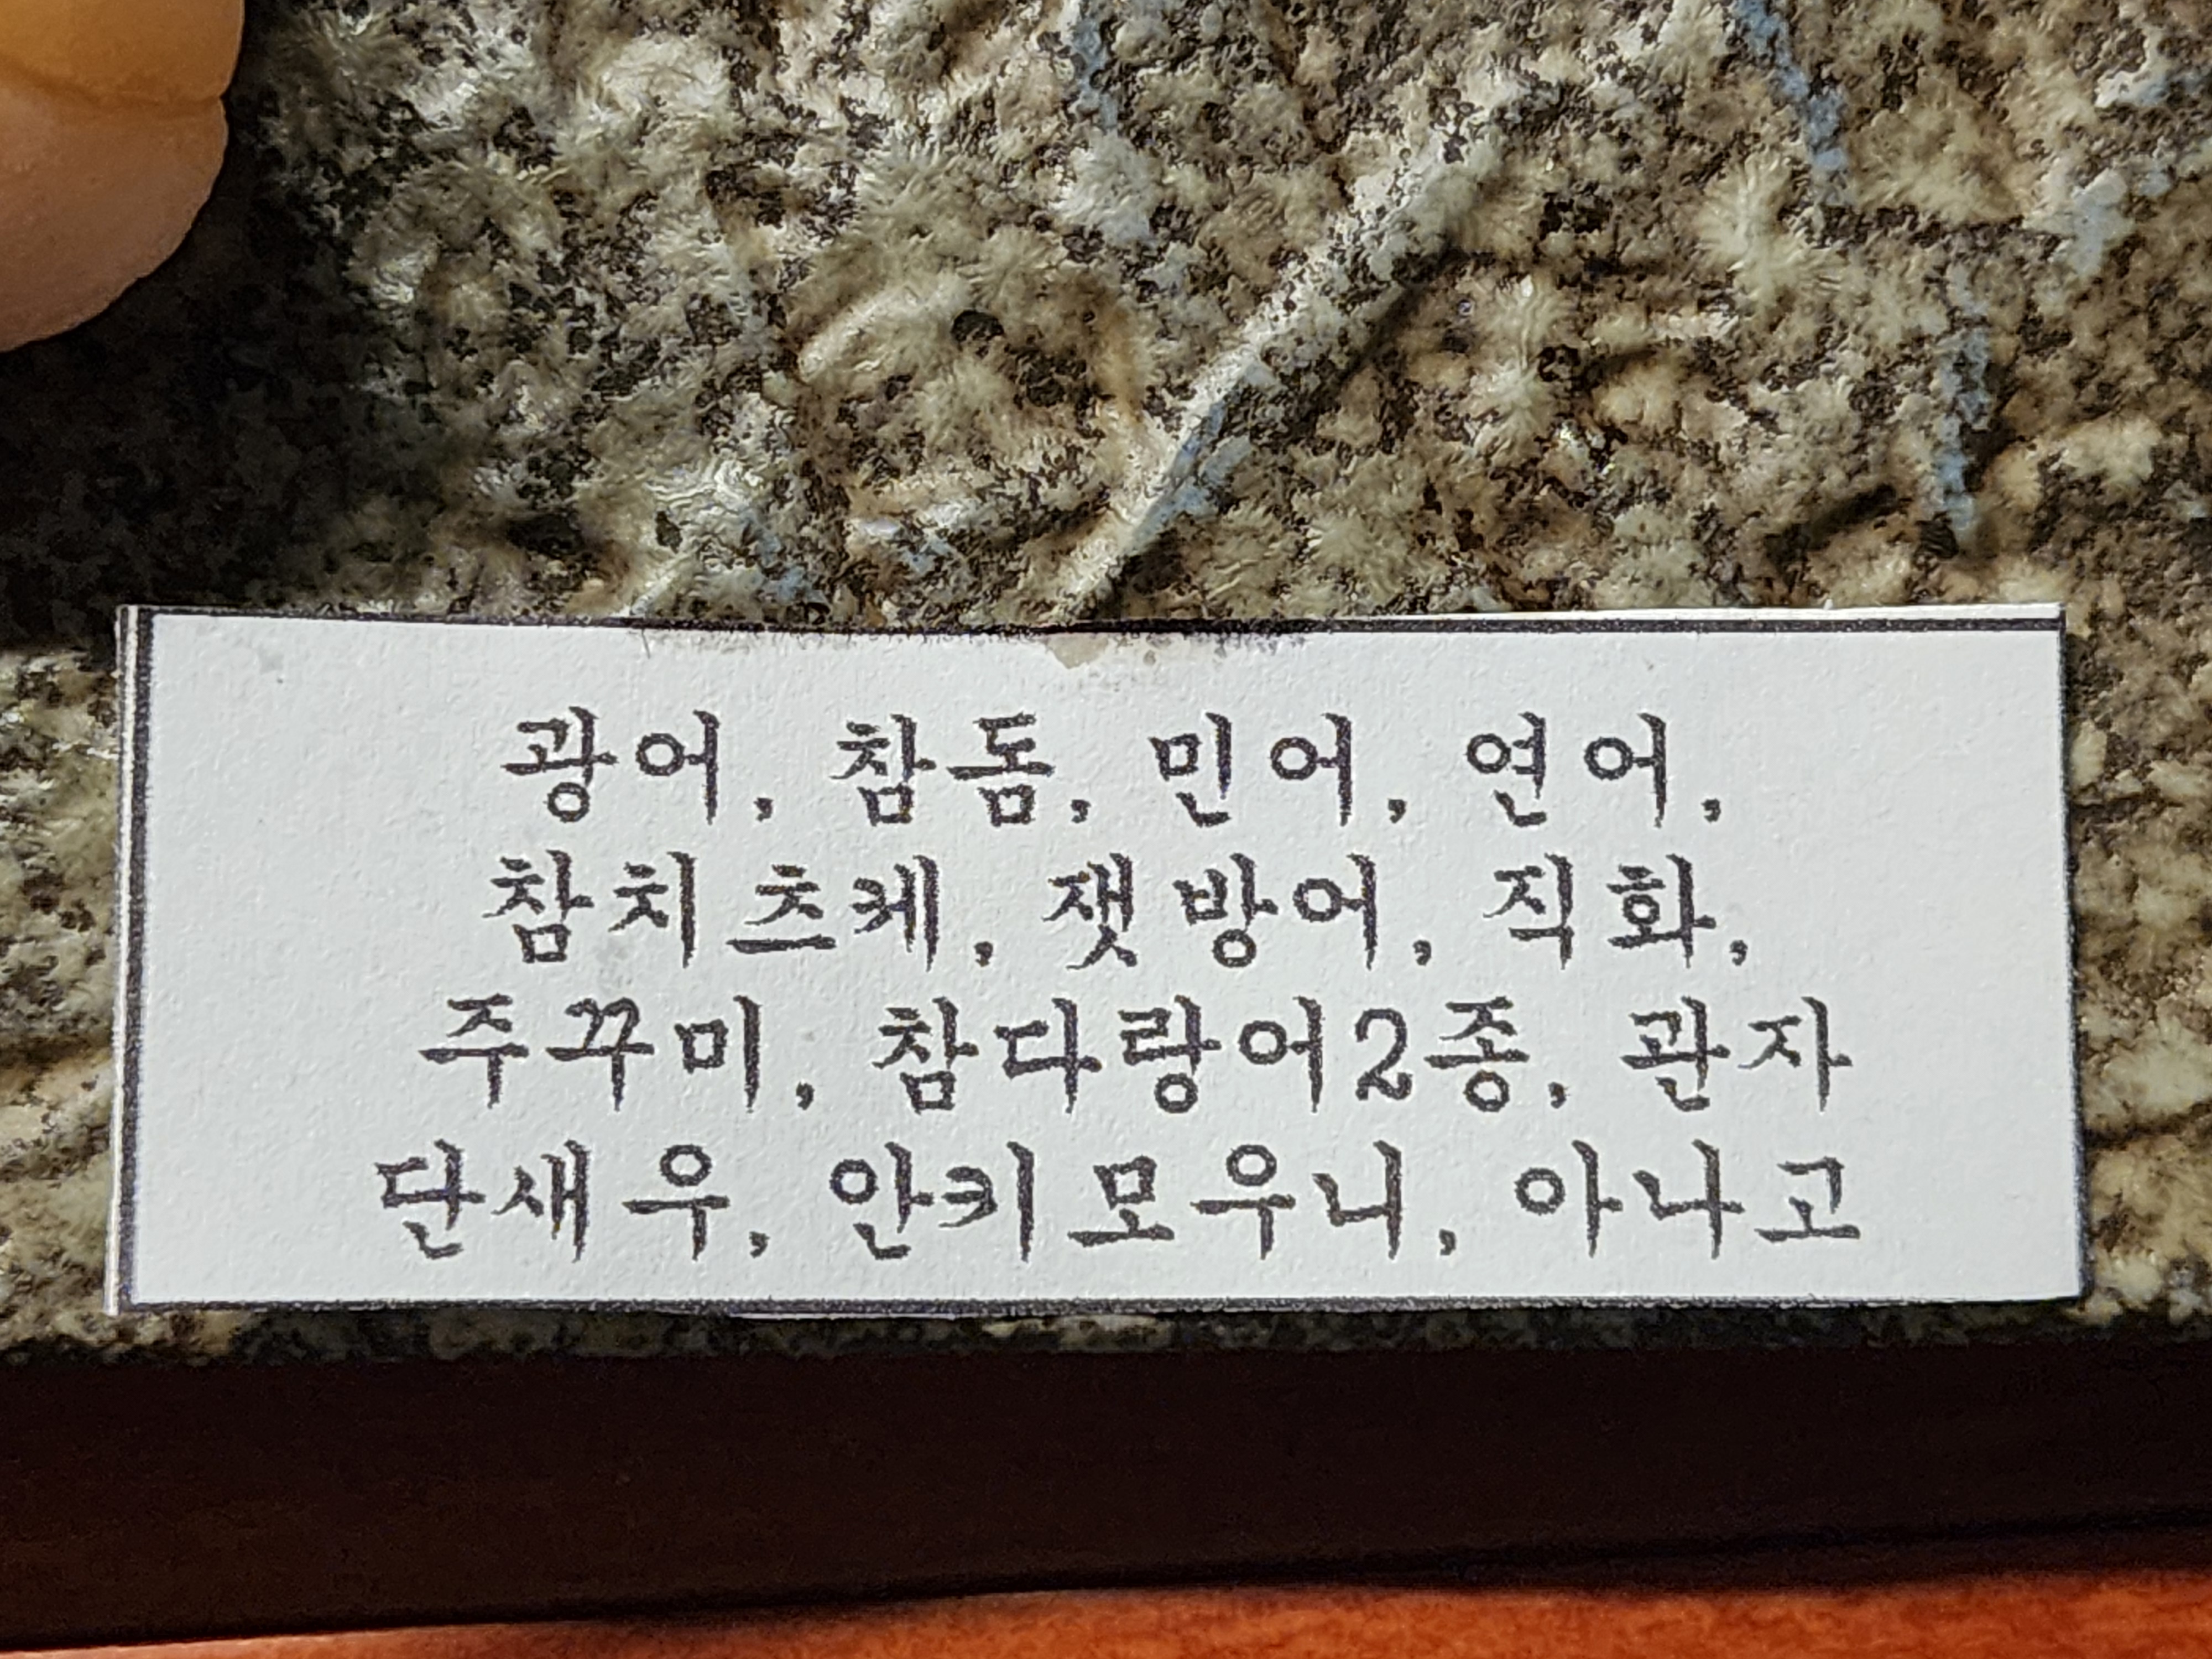 광어, 참돔, 민어, 연어,
참치츠케, 잿방어, 직화,
주꾸미, 참다랑어2종, 관자
단새우, 안키모우니, 아나고